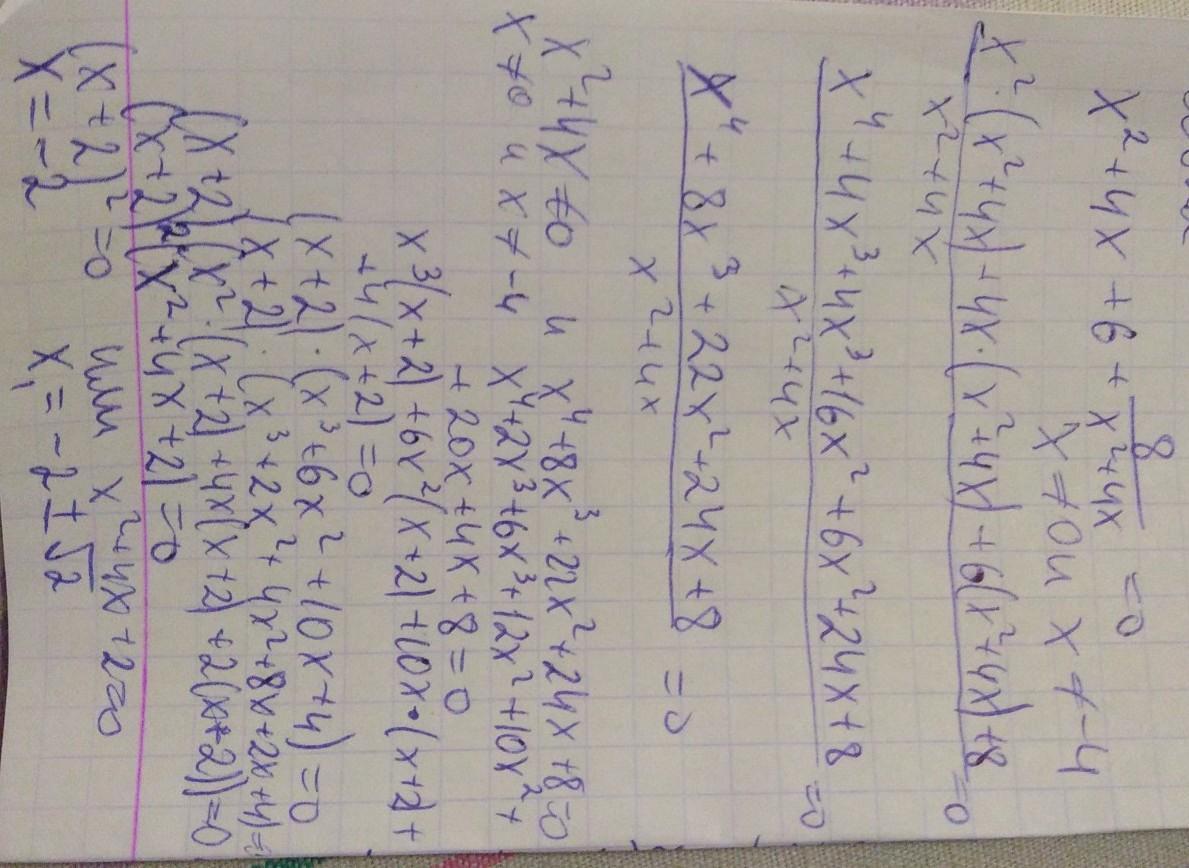 x² + 4x + 6 + 8/(x² + 4x) = 0
x ≠ 0 и x ≠ -4
(x² · (x² + 4x) + 4x · (x² + 4x) + 6(x² + 4x) + 8)/(x² + 4x) = 0
(x⁴ + 4x³ + 4x³ + 16x² + 6x² + 24x + 8)/(x² + 4x) = 0
(x⁴ + 8x³ + 22x² + 24x + 8)/(x² + 4x) = 0
x² + 4x ≠ 0 и x⁴ + 8x³ + 22x² + 24x + 8 = 0
x ≠ 0 и x ≠ -4 x⁴ + 2x³ + 6x³ + 12x² + 10x² +
+ 20x + 4x + 8 = 0
x³(x + 2) + 6x²(x + 2) + 10x · (x + 2) +
+ 4(x + 2) = 0
(x + 2) · (x³ + 6x² + 10x + 4) = 0
(x + 2) · (x³ + 2x² + 4x² + 8x + 2x + 4) =
(x + 2)(x² · (x + 2) + 4x(x + 2) + 2(x + 2)) = 0
(x + 2)² (x² + 4x + 2) = 0
(x + 2)² = 0 или x² + 4x + 2 = 0
x = -2 x₁ = -2 ± √2